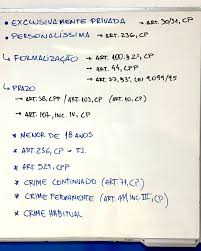 • EXCLUSIVAMENTE PRIVADA → ART. 30/31, CP
• PERSONALÍSSIMA → ART. 236, CP
↳ FORMALIZAÇÃO → ART. 100, § 2º, CP
→ ART. 44, CPP
→ ART. 77, § 3º, LEI 9.099/95
↳ PRAZO
→ ART. 38, CPP / ART. 103, CP (ART. 10, CP)
→ ART. 107, INC. IV, CP
* MENOR DE 18 ANOS
* ART. 236, CP → T.J.
* ART. 529, CPP
* CRIME CONTINUADO (ART. 71, CP)
* CRIME PERMANENTE (ART. 111, INC. III, CP)
* CRIME HABITUAL